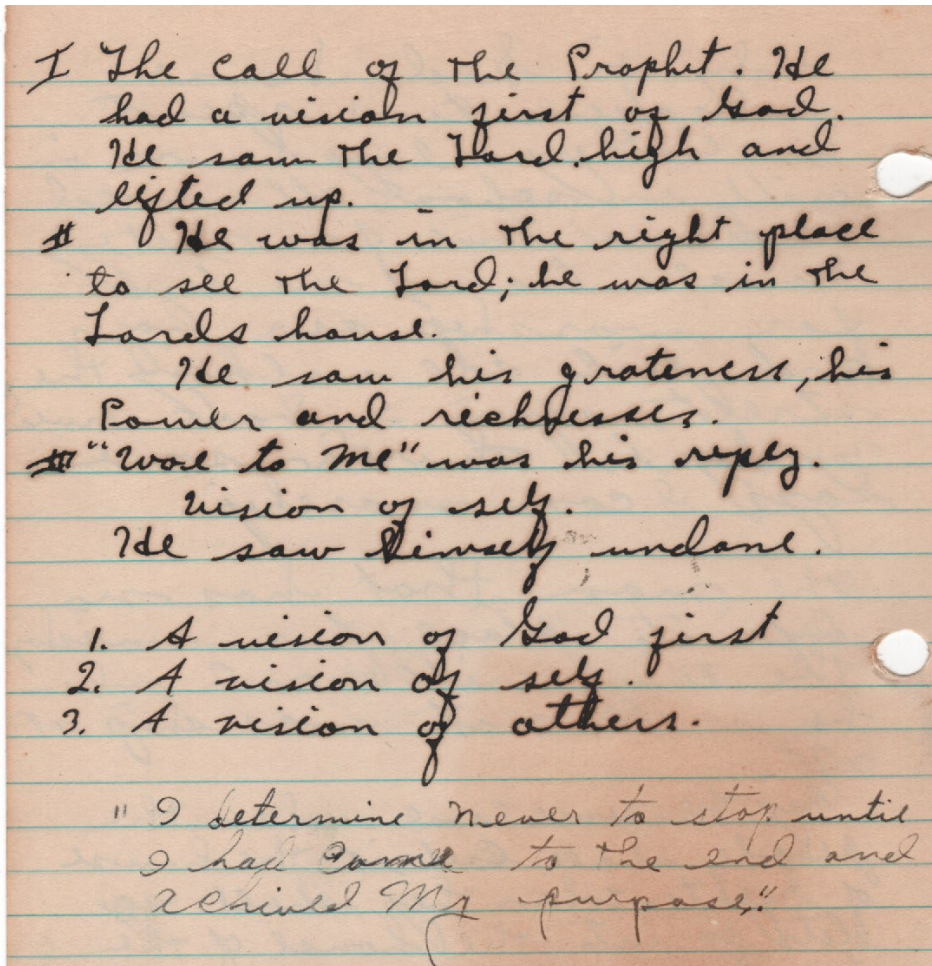 I The call of the Prophet. He
had a vision first of God.
He saw the Lord. high and
lifted up.
II He was in the right place
to see the Lord; he was in the
Lords house.
He saw his grateness, his
Power and richnesses.
III "Woe to Me" was his reply.
Vision of self.
He saw himself undone.
1. A vision of God first
2. A vision of self.
3. A vision of others.
"I determine never to stop until
I had come to the end and
achived My purpose."